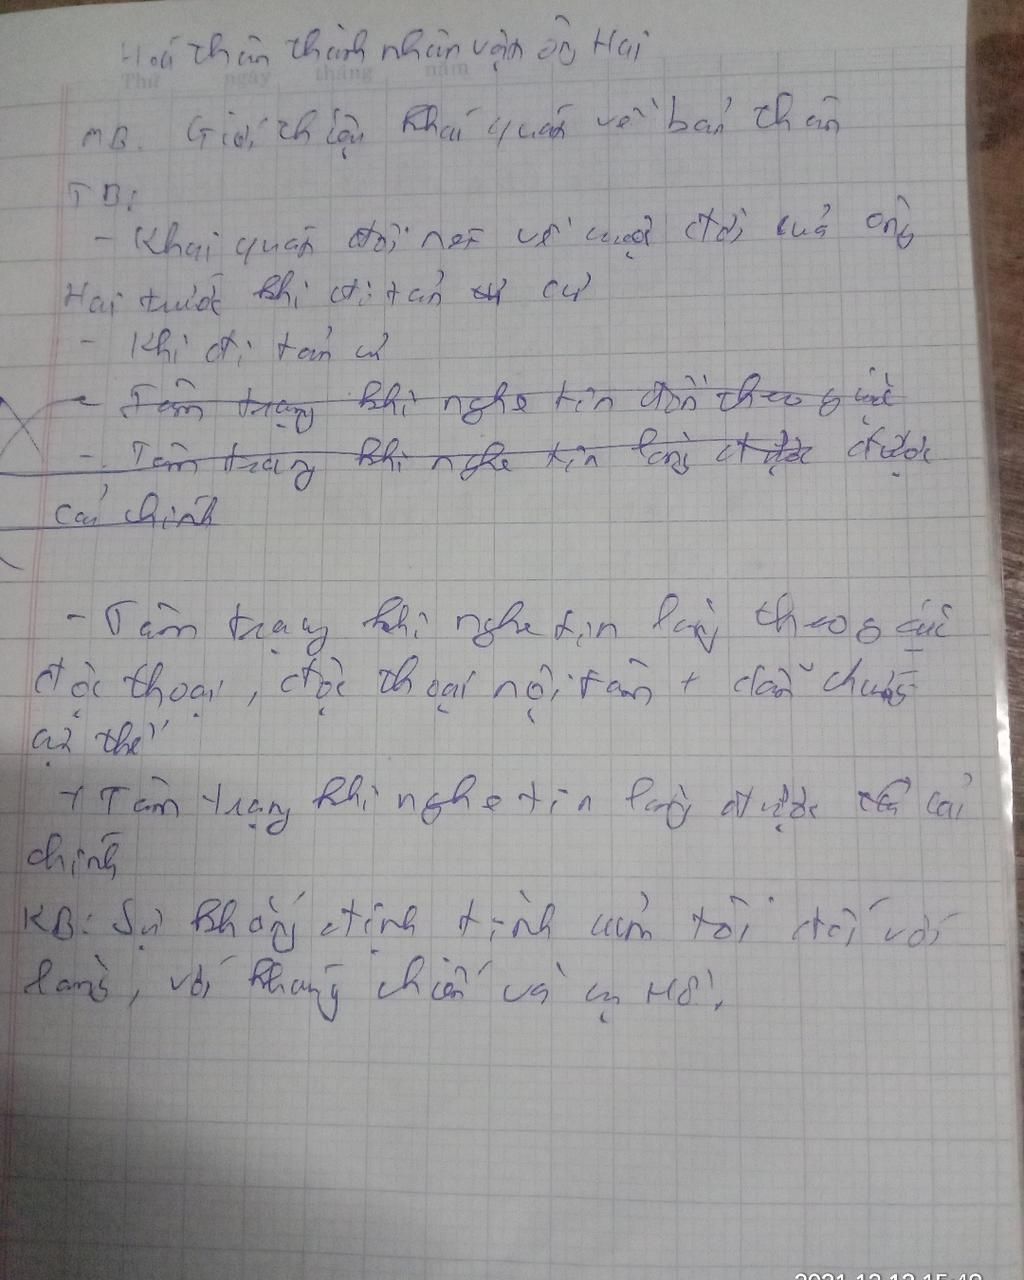 Hoá thân thành nhân vật ôg Hai
Thứ ngày tháng năm
MB. Giới thiệu khái quát về bản thân
TB:
- Khái quát đôi nét về cuộc đời của ông
Hai trước khi đi tản cư
- Khi đi tản cư
- Tâm trạng khi nghe tin đồn theo giặc
- Tâm trạng khi nghe tin làng được
cải chính
- Tâm trạng khi nghe tin làng theo giặc
độc thoại, độc thoại nội tâm + dẫn chứng
cụ thể
+ Tâm trạng khi nghe tin làng được cải
chính
KB: Sự khẳng định tình cảm tôi đối với
làng, với kháng chiến và cụ Hồ.
2021.12.12 15:49